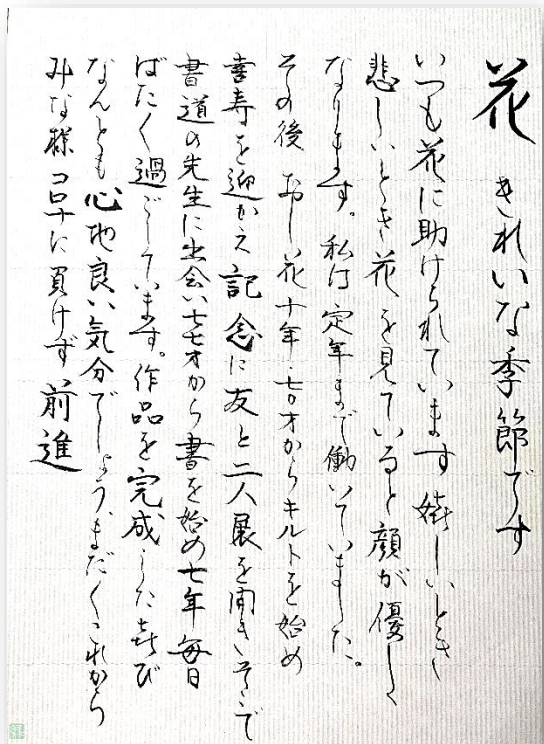 花 きれいな季節です
いつも花に助けられています 嬉しいとき
悲しいとき花を見ていると顔が優しく
なります。私は定年まで働いていました。
その後 おし花十年・七〇才からキルトを始め
喜寿を迎かえ記念に友と二人展を開きそこで
書道の先生に出会い七七才から書を始め七年毎日
ばたく過ごしています。作品を完成した喜び
なんとも心地良い気分でしょう、まだ〱これから
みな様コロナに負けず前進